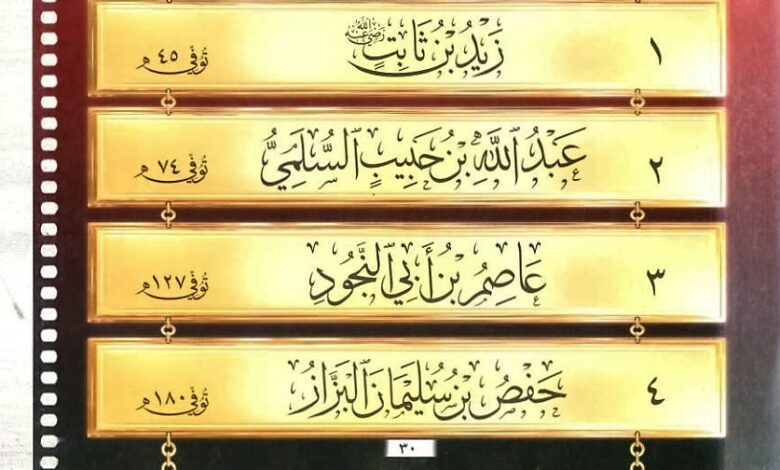 ١ زَيْدُ بْنُ ثَابِتٍ رضي الله عنه توفي ٤٥ م
٢ عَبْدُ اللَّهِ بْنُ حَبِيبٍ السُّلَمِيُّ توفي ٧٤ م
٣ عَاصِمُ بْنُ أَبِي النَّجُودِ توفي ١٢٧ م
٤ حَفْصُ بْنُ سُلَيْمَانَ الْبَزَّازُ توفي ١٨٠ م
٣٠